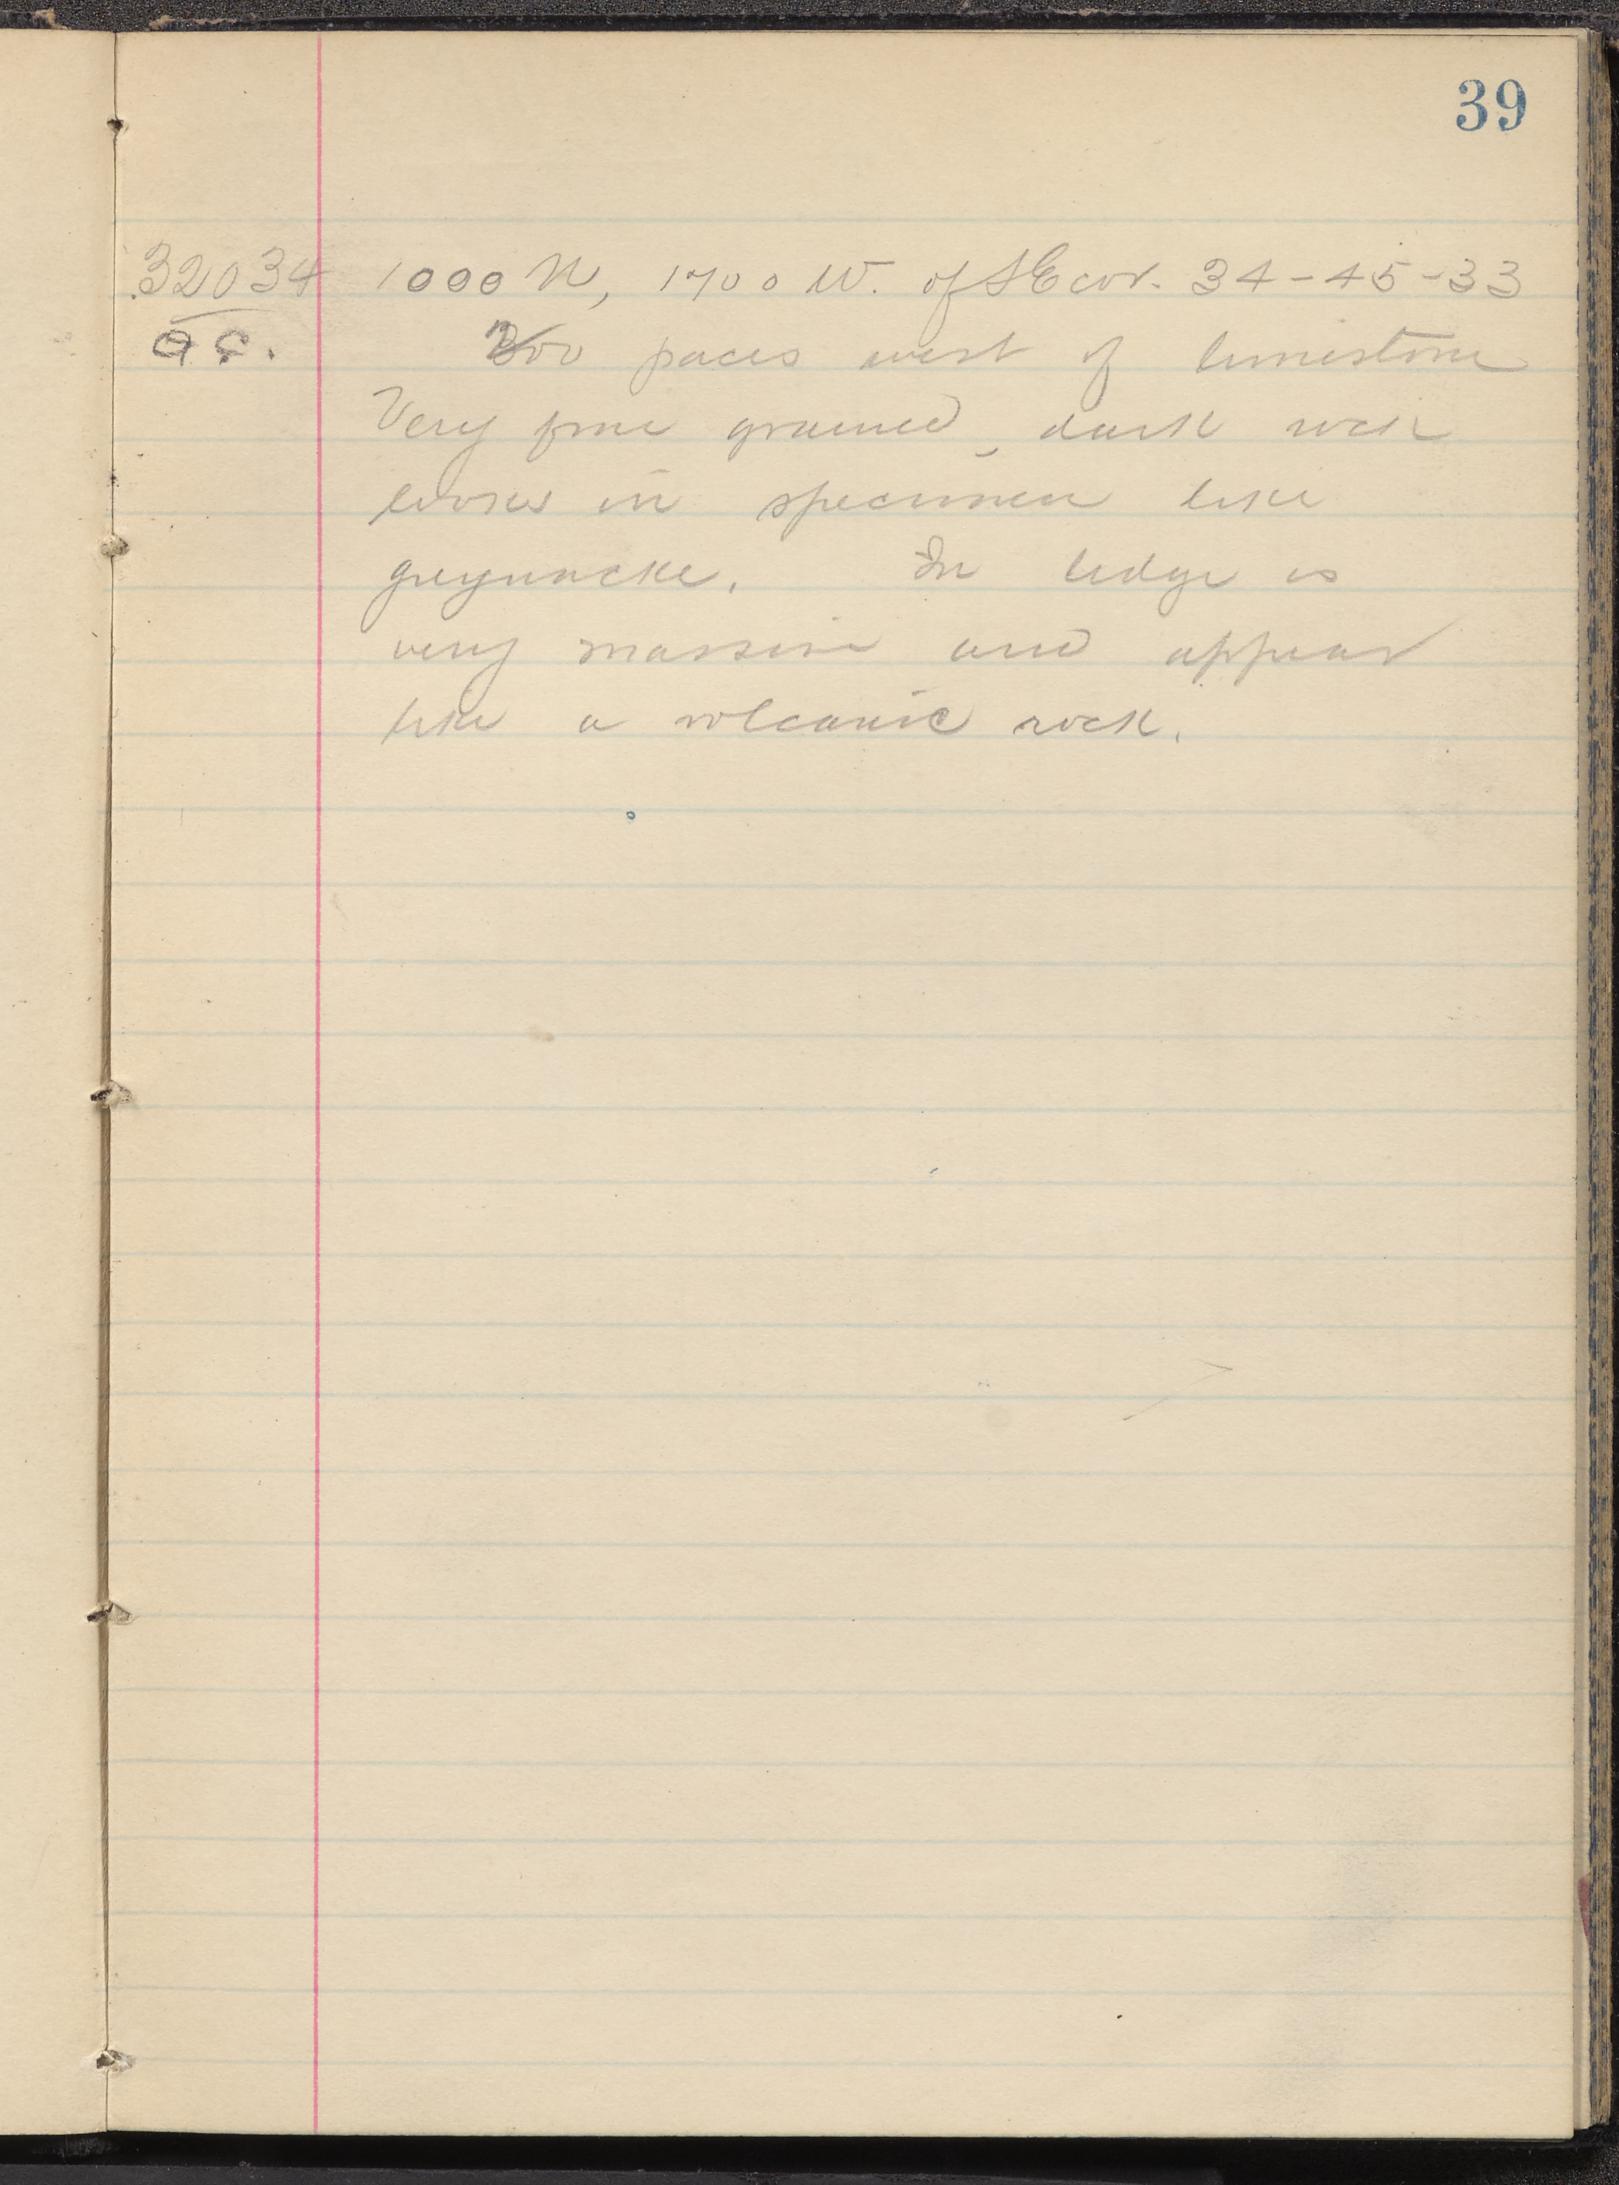 39
32034 1000 N, 1700 W. of SE cor. 34-45-33
200 paces west of limestone
Very fine grained, dark rock
looks in specimen like
greywacke. In ledge is
very massive and appear
like a volcanic rock.